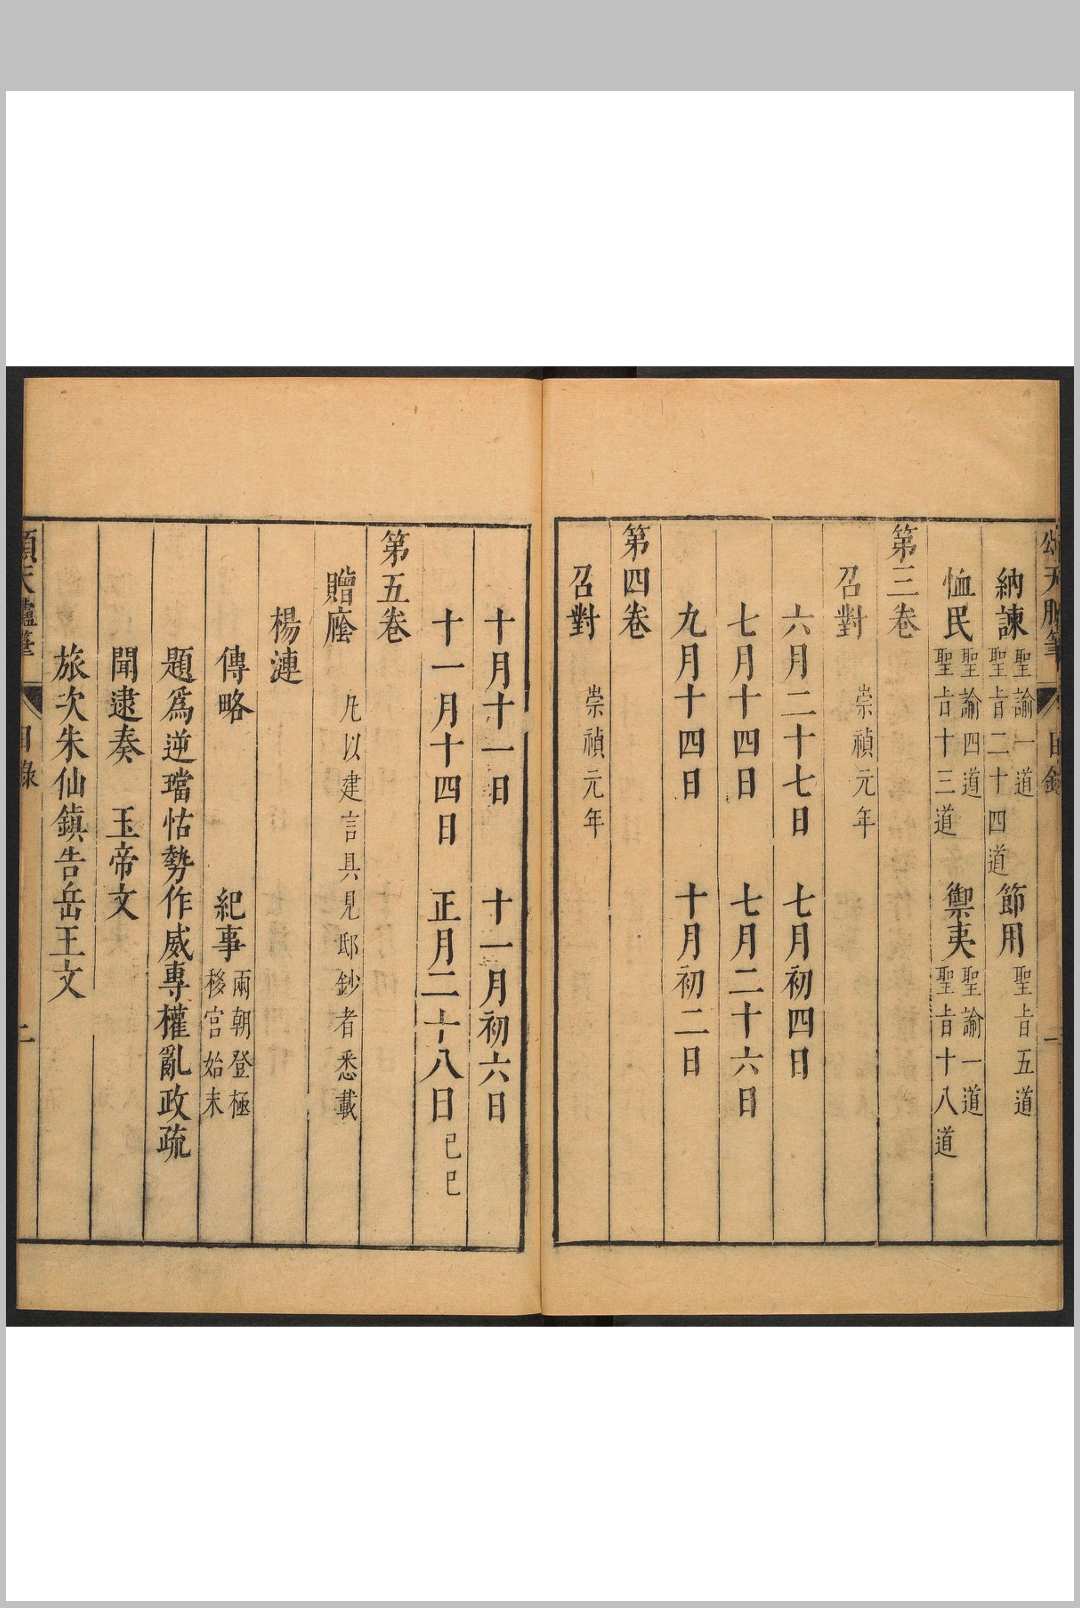 頌天臚筆 目錄 一
納諫 聖諭一道 聖旨二十四道 節用 聖旨五道
恤民 聖諭四道 聖旨十三道 禦夷 聖諭一道 聖旨十八道
第三卷
召對 崇禎元年
六月二十七日 七月初四日
七月十四日 七月二十六日
九月十四日 十月初二日
第四卷
召對 崇禎元年
十月十一日 十一月初六日
十一月十四日 正月二十八日 己巳
第五卷
贈廕 凡以建言具見邸鈔者悉載
楊漣
傳略 紀事 兩朝登極 移宮始末
題為逆璫怙勢作威專權亂政疏
聞逮奏 玉帝文
旅次朱仙鎮告岳王文
頌天臚筆 目錄 二